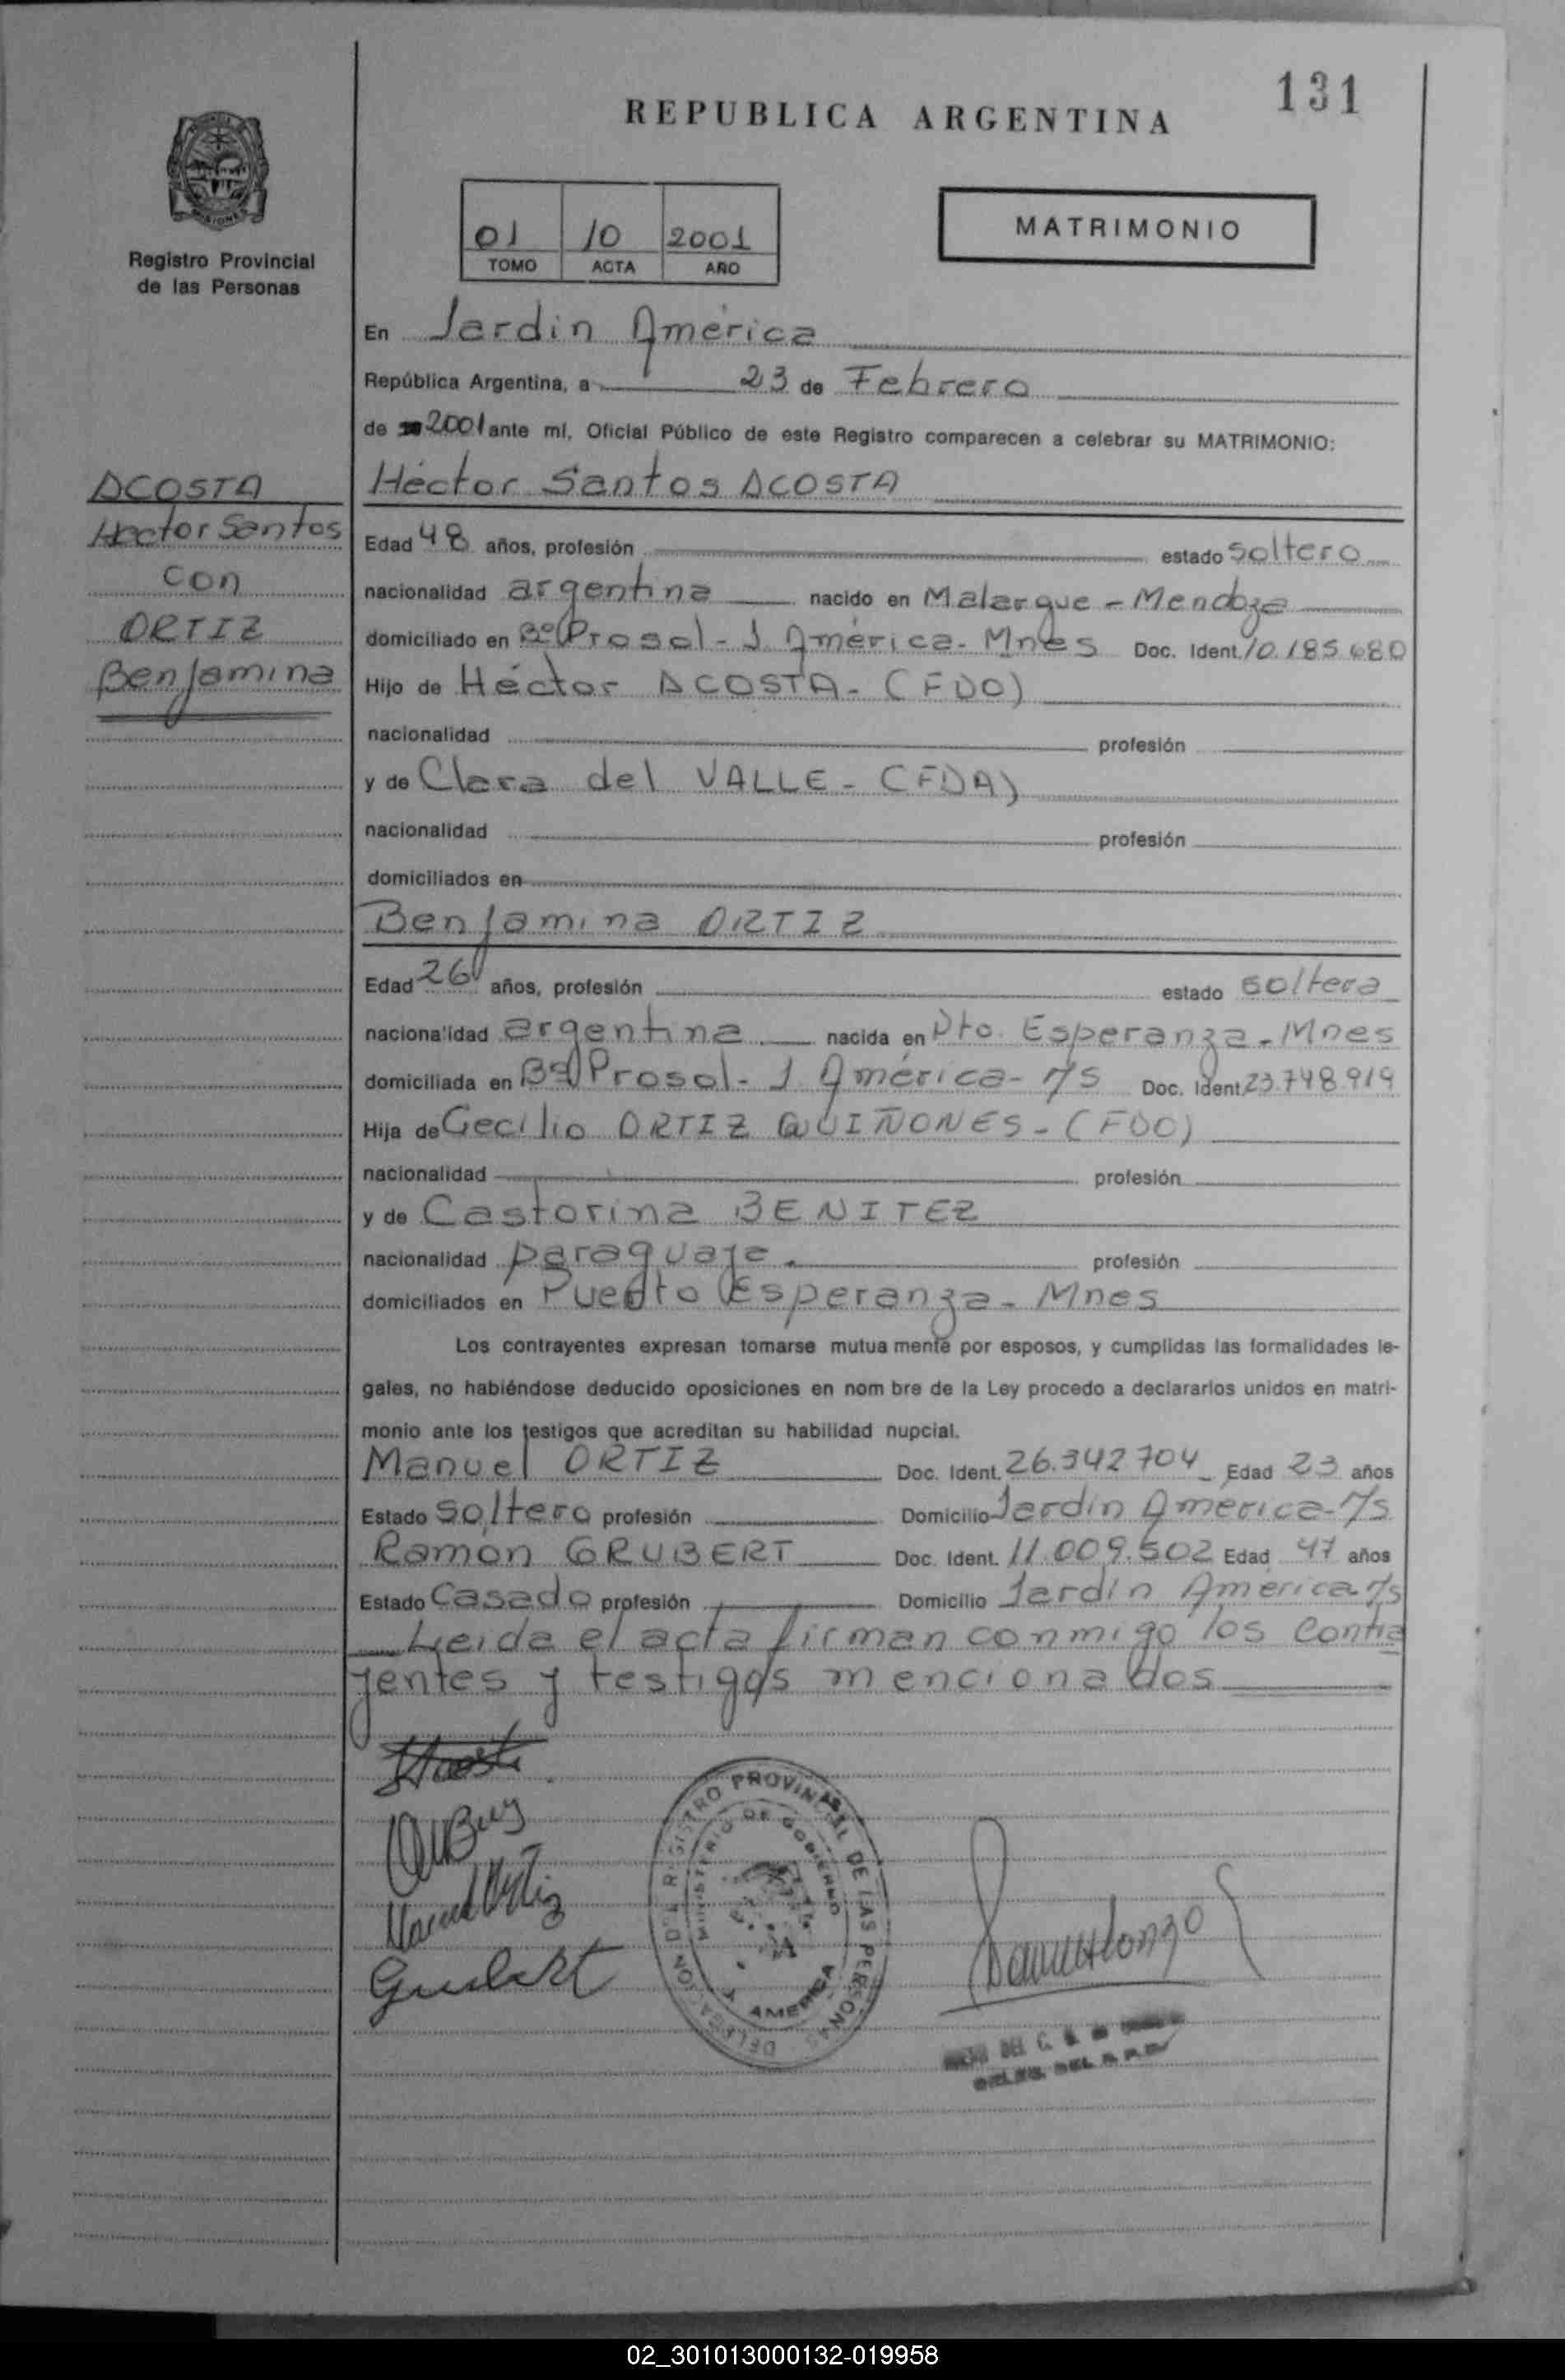 131
REPUBLICA ARGENTINA
MISIONES
Registro Provincial
de las Personas
01 10 2001
TOMO ACTA AÑO
MATRIMONIO
En Jardin América
República Argentina, a 23 de Febrero
de 2001 ante mí, Oficial Público de este Registro comparecen a celebrar su MATRIMONIO:
ACOSTA
Hector Santos
con
ORTIZ
Benjamina
Héctor Santos ACOSTA
Edad 48 años, profesión estado soltero
nacionalidad argentina nacido en Malargue - Mendoza
domiciliado en Bº Prosol - J. América - Mnes Doc. Ident. 10.185.680
Hijo de Héctor ACOSTA - (FDO)
nacionalidad profesión
y de Clara del VALLE - (FDA)
nacionalidad profesión
domiciliados en
Benjamina ORTIZ
Edad 26 años, profesión estado soltera
nacionalidad argentina nacida en Pto. Esperanza - Mnes
domiciliada en Bº Prosol - J. América - M/s Doc. Ident. 23.748.919
Hija de Cecilio ORTIZ QUIÑONES - (FDO)
nacionalidad profesión
y de Castorina BENITEZ
nacionalidad paraguaja profesión
domiciliados en Puerto Esperanza - Mnes
Los contrayentes expresan tomarse mutua mente por esposos, y cumplidas las formalidades le-
gales, no habiéndose deducido oposiciones en nom bre de la Ley procedo a declararlos unidos en matri-
monio ante los testigos que acreditan su habilidad nupcial.
Manuel ORTIZ Doc. Ident. 26.342704 Edad 23 años
Estado soltero profesión Domicilio Jardin América - M/s
Ramon GRUBERT Doc. Ident. 11.009.502 Edad 47 años
Estado Casado profesión Domicilio Jardin America M/s
Leida el acta firman conmigo los contra
jentes y testigos mencionados
Manuel Ortiz
Grubert
REGISTRO PROVINCIAL DE LAS PERSONAS
MINISTERIO DE GOBIERNO
J. AMERICA
02_301013000132-019958